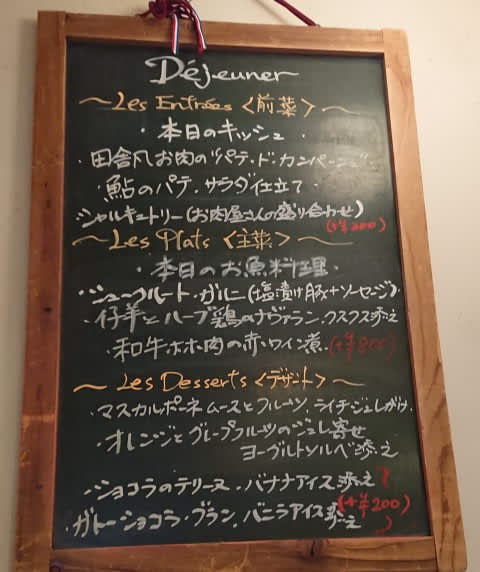 Déjeuner
～Les Entrées〈前菜〉～
・本日のキッシュ
・田舎風お肉の"パテ・ド・カンパーニュ"
・鮎のパテ・サラダ仕立て
・シャルキュトリー(お肉屋さんの盛り合わせ)
(+¥200)
～Les Plats〈主菜〉～
・本日のお魚料理
・シュークルート・ガルニ(塩漬け豚+ソーセージ)
・仔羊とハーブ鶏のナヴァラン、クスクス添え
・和牛ホホ肉の赤ワイン煮 (+¥800)
～Les Desserts〈デザート〉～
・マスカルポーネムースとフルーツ、ライチジュレがけ
・オレンジとグレープフルーツのジュレ寄せ
ヨーグルトソルベ添え
・ショコラのテリーヌ・バナナアイス添え
(+¥200)
・ガトーショコラ・ブラン、バニラアイス添え